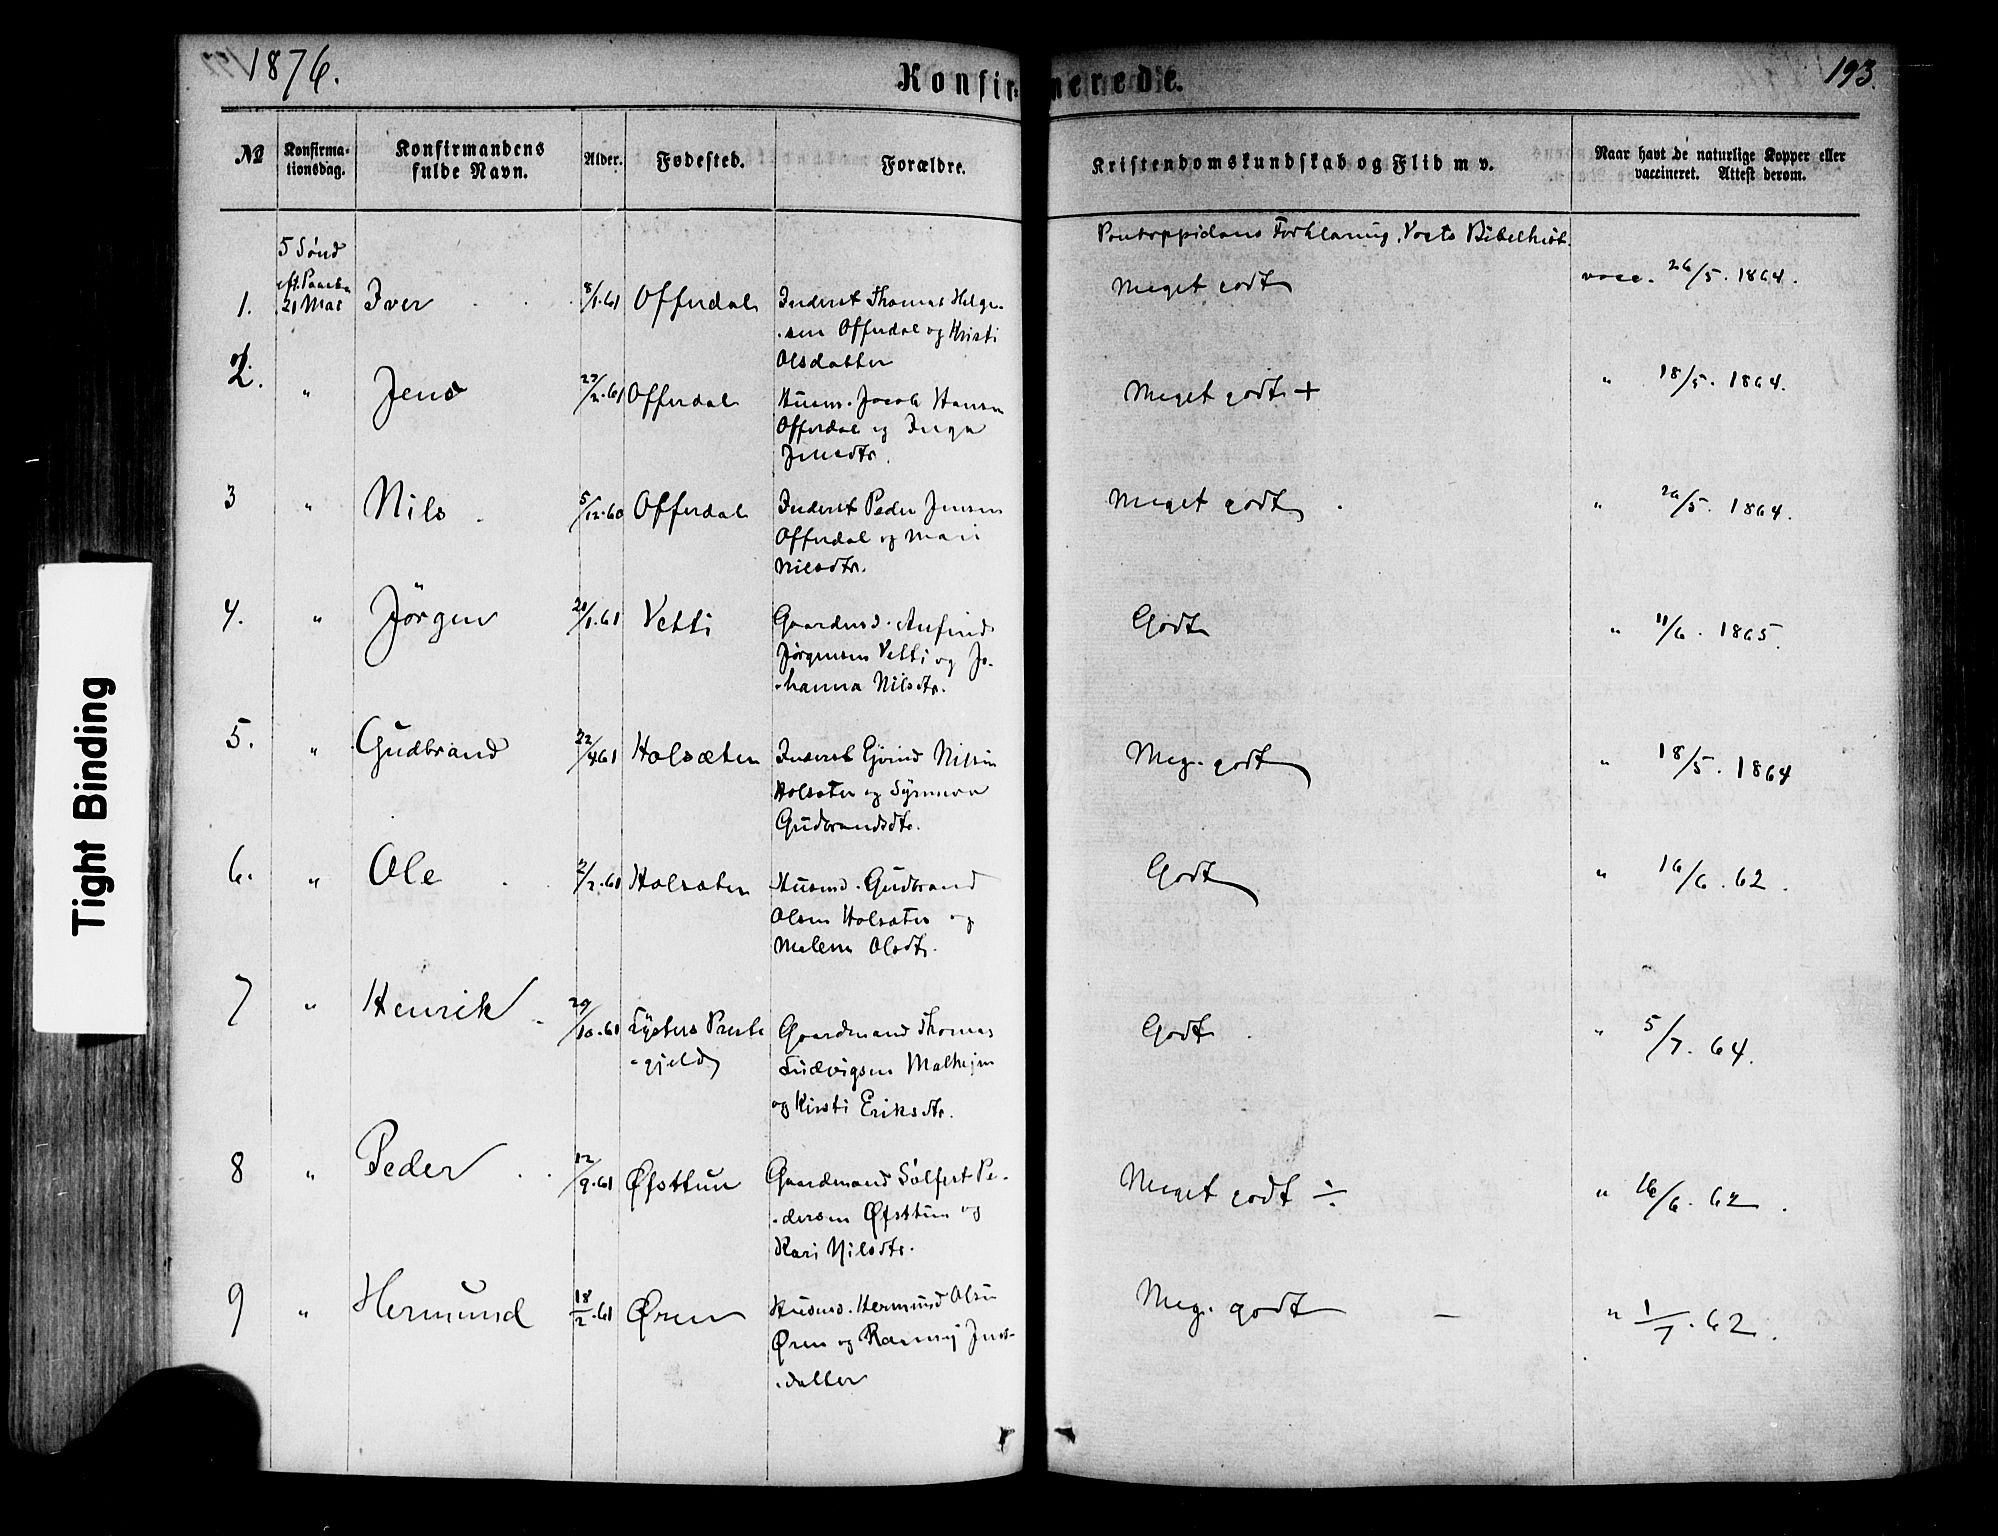 1876.
193.
Konfirmerede.
№
Konfirma-
tionsdag.
Konfirmandens
fulde Navn.
Alder.
Fødested.
Forældre.
Kristendomskundskab og Flid m v.
Naar havt de naturlige Kopper eller
vaccineret. Attest derom.
Pontoppidans Forklaring, Vogts Bibelhist.
5 Sønd
eft. Paaske
1. 21 Mai Iver 8/1.61 Offerdal
Inderst Thomas Helge-
sen Offerdal og Kristi
Olsdatter
Meget godt
vacc. 26/5. 1864.
2. " Jens 27/2.61 Offerdal
Husm. Jacob Hansen
Offerdal og Inga
Jensdtr.
Meget godt +
" 18/5. 1864.
3 " Nils 5/12.60 Offerdal
Inderst Peder Jensen
Offerdal og Mari
Nilsdtr.
Meget godt
" 26/5. 1864.
4. " Jörgen 20/1.61 Vetti
Gaardmd. Anfind
Jørgensen Vetti og Jo-
hanna Nilsdtr.
Godt
" 11/6. 1865.
5. " Gudbrand 22/4.61 Holsæter
Inderst Ejvind Nilsen
Holsæter og Synneva
Gudbrandsdtr.
Meg. godt
" 18/5. 1864
6. " Ole 2/2.61 Holsæter
Husmd. Gudbrand
Olsen Holsæter og
Malene Olsdtr.
Godt
" 16/6. 62.
7 " Henrik 29/10.61 Lysters Præste
-gjeld
Gaardmand Thomas
Ludvigsen Molhejm
og Kirsti Eriksdtr.
Godt
" 5/7. 64.
8 " Peder 12/9.61 Øfsttun
Gaardmand Sølfest Pe-
dersen Øfsttun og
Kari Nilsdtr.
Meget godt ÷
" 16/6. 62.
9 " Hermund 18/2.61 Øren
Husmd. Hermund Olsen
Øren og Ragnvej Jens-
datter
Meg. godt —
" 1/7. 62.
Tight Binding